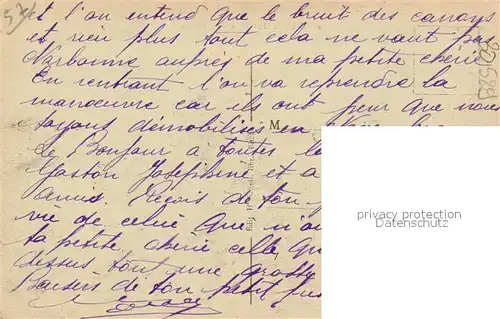 574
t l'on entend que le bruit des canons
et rien plus tout cela ne vaut pas
Narbonne aupres de ma petite cherie
En rentrant l'on va reprendre la
manoeuvre car ils ont peur que nous
soyons démobilisés en
M
Le Bonjour à toutes
Gaston Josephine et a
amis. Reçois de ton
vie de celui que n'a
ta petite cherie celle que
dessus tout une grosse
Baisers de ton petit
privacy protection
www.delcampe.net